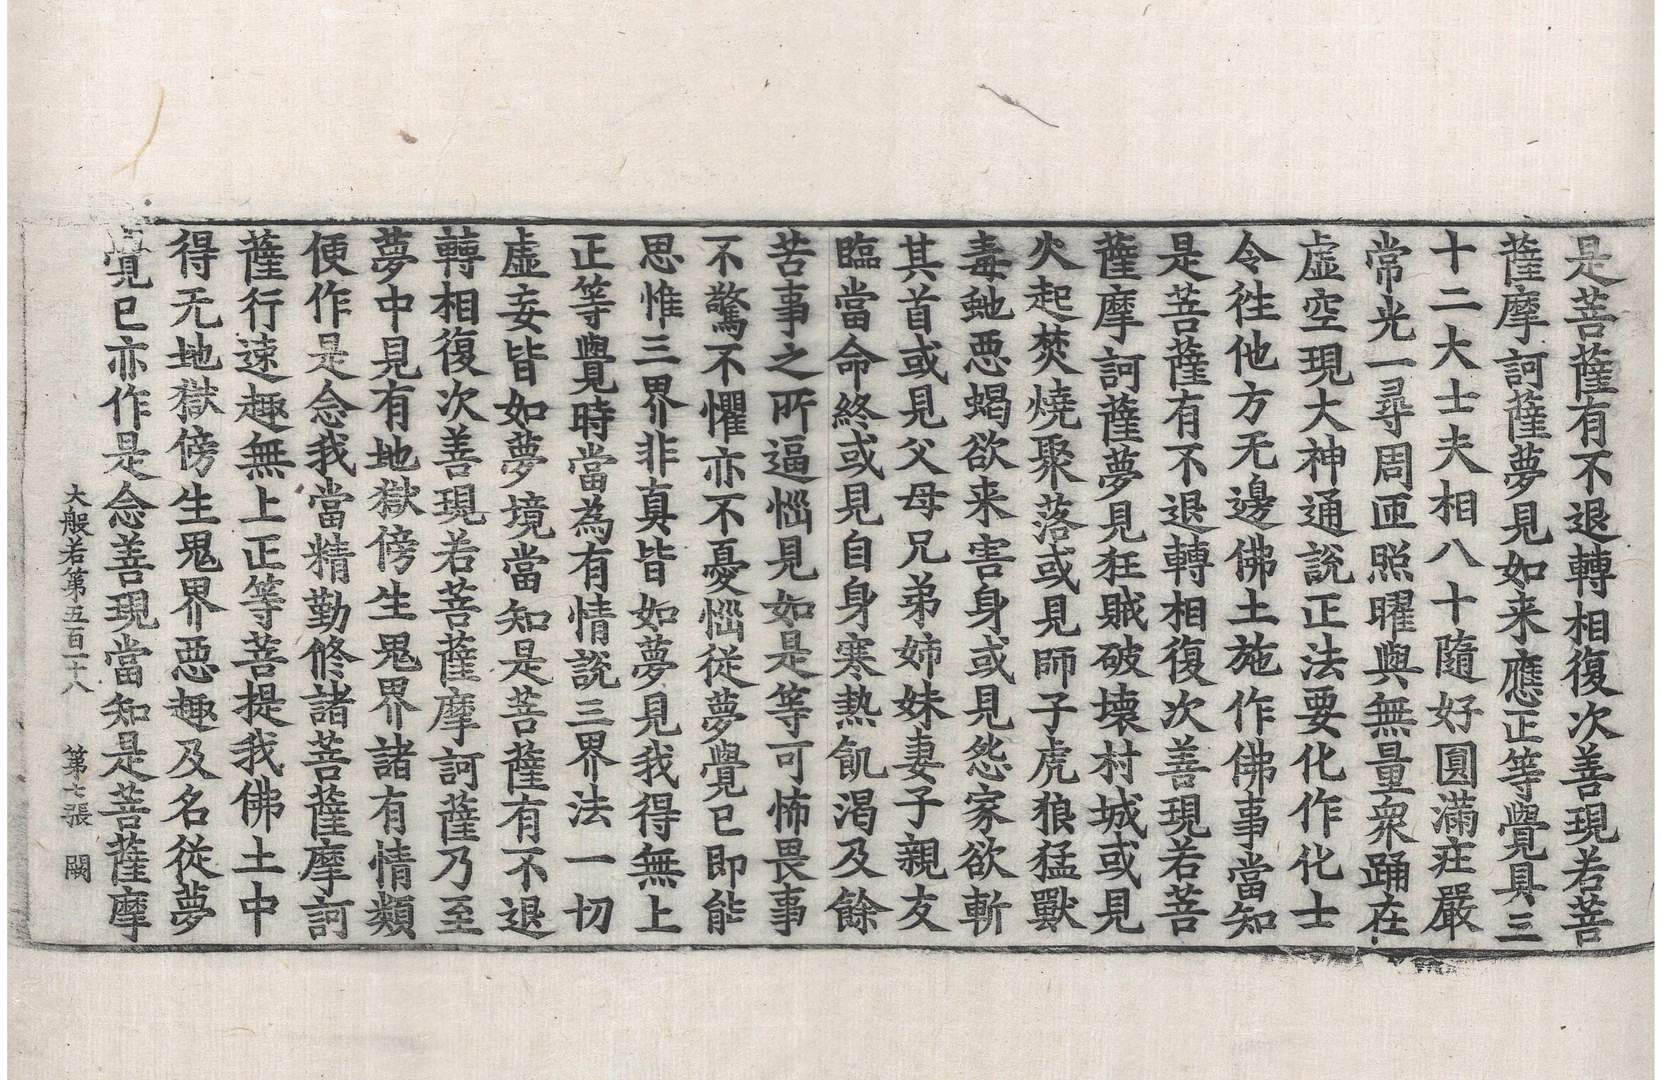 是菩薩有不退轉相復次善現若菩
薩摩訶薩夢見如来應正等覺具三
十二大士夫相八十隨好圓滿莊嚴
常光一尋周匝照曜與無量衆踊在
虛空現大神通說正法要化作化士
令徃他方无邊佛土施作佛事當知
是菩薩有不退轉相復次善現若菩
薩摩訶薩夢見狂賊破壞村城或見
火起焚燒聚落或見師子虎狼猛獸
毒虵悪蝎欲来害身或見怨家欲斬
其首或見父母兄弟姉妹妻子親友
臨當命終或見自身寒熱飢渴及餘
苦事之所逼惱見如是等可怖畏事
不驚不懼亦不憂惱從夢覺已即能
思惟三界非真皆如夢見我得無上
正等覺時當為有情說三界法一切
虛妄皆如夢境當知是菩薩有不退
轉相復次善現若菩薩摩訶薩乃至
夢中見有地獄傍生鬼界諸有情類
便作是念我當精勤修諸菩薩摩訶
薩行速趣無上正等菩提我佛土中
得无地獄傍生鬼界悪趣及名從夢
覺已亦作是念善現當知是菩薩摩
大般若第五百一十八 第七張 闕